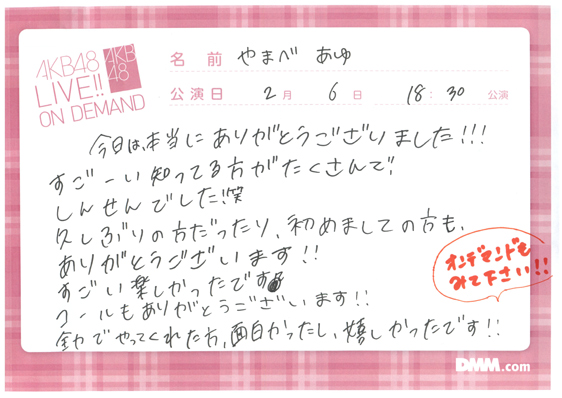 AKB48
LIVE!!
ON DEMAND
AKB
48
名前 やまべ あゆ
公演日 2月 6日 18:30 公演
今日は、本当にありがとうございました!!!
すごーい知ってる方がたくさんで!
しんせんでした!笑
久しぶりの方だったり、初めましての方も、
ありがとうございます!!
すごい楽しかったです
コールもありがとうございます!!
全力でやってくれた方、面白かったし、嬉しかったです!!
オンデマンドも
みて下さい!!
DMM.com